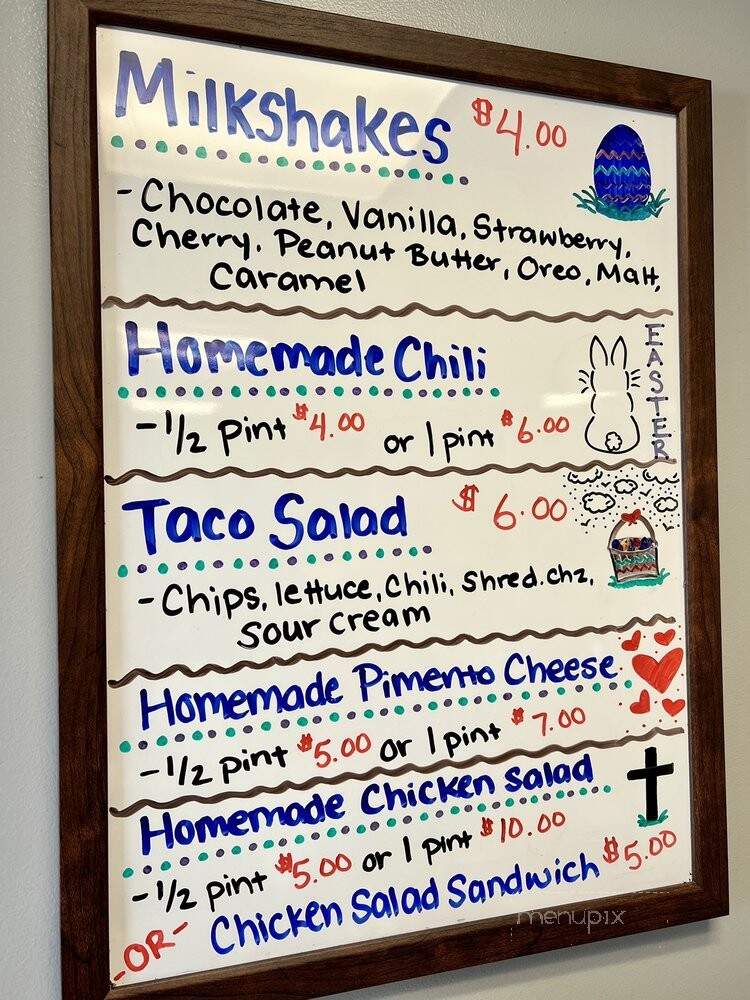 Milkshakes $4.00
- Chocolate, Vanilla, Strawberry,
Cherry. Peanut Butter, Oreo, Malt,
Caramel
Homemade Chili
EASTER
- 1/2 pint $4.00 or 1 pint $6.00
Taco Salad $6.00
- Chips, lettuce, Chili, Shred. chz,
Sour cream
Homemade Pimento Cheese
- 1/2 pint $5.00 or 1 pint $7.00
Homemade Chicken Salad
- 1/2 pint $5.00 or 1 pint $10.00
-OR- Chicken Salad Sandwich $5.00
menupix